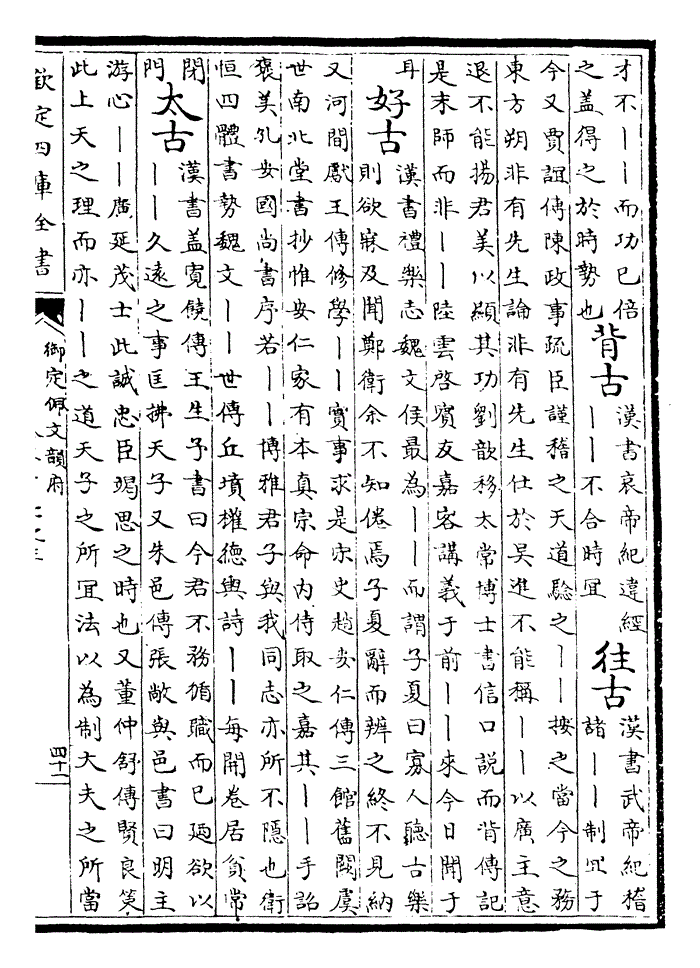 才不丨丨而功已倍
之盖得之於時勢也
背古
漢書哀帝紀違經
丨丨不合時宜
往古
漢書武帝紀稽
諸丨丨制宜于
今又賈誼傳陳政事疏臣謹稽之天道驗之丨丨按之當今之務
東方朔非有先生論非有先生仕於吳進不能稱丨丨以廣主意
退不能揚君美以顯其功劉歆移太常博士書信口説而背傳記
是末師而非丨丨陸雲啓賓友嘉客講義于前丨丨來今日聞于
耳
好古
漢書禮樂志魏文侯最為丨丨而謂子夏曰寡人聽古樂
則欲寐及聞鄭衛余不知倦焉子夏辭而辨之終不見納
又河間獻王傳修學丨丨實事求是宋史趙安仁傳三館舊闕虞
世南北堂書抄惟安仁家有本真宗命内侍取之嘉其丨丨手詔
褒美孔安國尚書序若丨丨博雅君子與我同志亦所不隱也衛
恒四體書勢魏文丨丨世傳丘墳權德輿詩丨丨每開卷居貧常
閉
門
太古
漢書盖寛饒傳王生予書曰今君不務循職而已廼欲以
丨丨久遠之事匡拂天子又朱邑傳張敞與邑書曰明主
游心丨丨廣延茂士此誠忠臣竭思之時也又董仲舒傳賢良策
此上天之理而亦丨丨之道天子之所宜法以為制大夫之所當
欽定四庫全書
御定佩文韻府
四十一